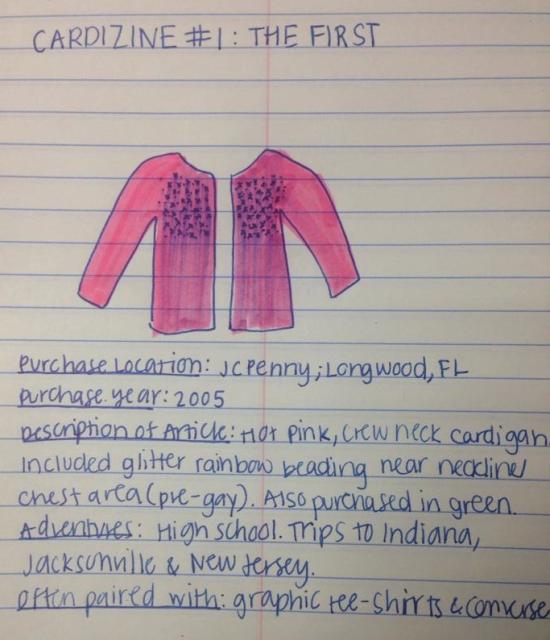 CARDIZINE #1: THE FIRST
Purchase Location: JC Penny; Longwood, FL
purchase year: 2005
Description of Article: Hot pink, crew neck cardigan
Included glitter rainbow beading near neckline/
chest area (pre-gay). Also purchased in green.
Adventures: High school. Trips to Indiana,
Jacksonville & New Jersey.
Often paired with: graphic tee-shirts & converse